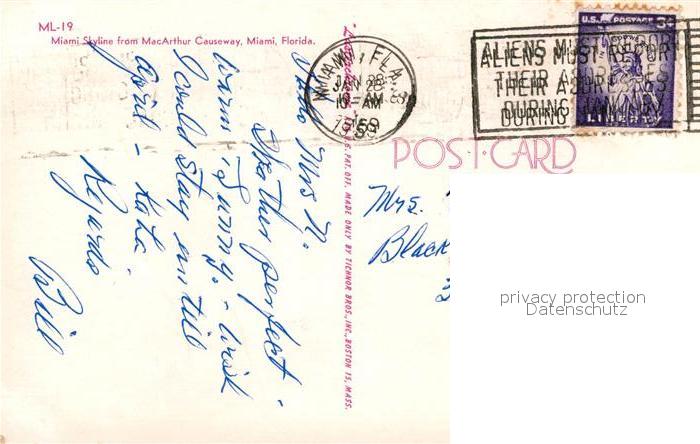 ML-19
Miami Skyline from MacArthur Causeway, Miami, Florida.
Mrs. N.
Weather perfect -
warm, sunny. - wish
I could stay until
April -
Regards
Bill
REG. U.S. PAT. OFF. MADE ONLY BY TICHNOR BROS., INC., BOSTON 15, MASS.
MIAMI, FLA.
JAN 28
AM
1959
ALIENS MUST REPORT
THEIR ADDRESSES
DURING JANUARY
U.S. POSTAGE 3¢
LIBERTY
POST CARD
Mrs.
Black
privacy protection
Datenschutz